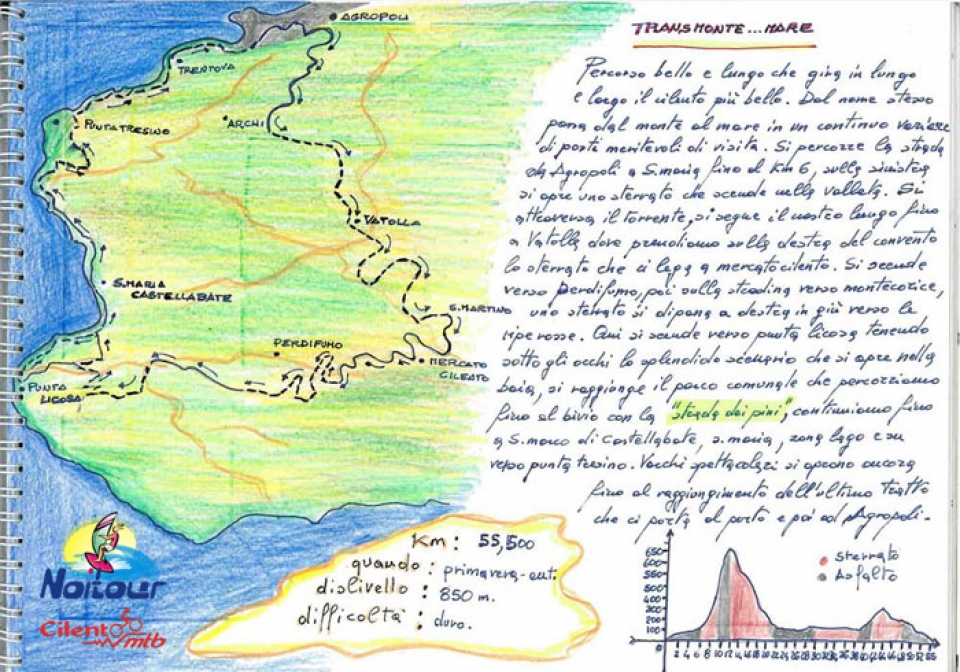 AGROPOLI
TRENTOVA
PUNTA TRESINO
ARCHI
VATOLLA
S.MARIA
CASTELLABATE
S.MARTINO
PERDIFUMO
MERCATO
CILENTO
PUNTA
LICOSA
TRANSMONTE...MARE
Percorso bello e lungo che gira in lungo
e largo il cilento più bello. Dal nome stesso
passa dal monte al mare in un continuo variare
di posti meritevoli di visita. Si percorre la strada
da Agropoli a S.maria fino al Km 6, sulla sinistra
si apre uno sterrato che scende nella vallata. Si
attraversa il torrente, si segue il nostro lungo fino
a Vatolla dove prendiamo sulla destra del convento
lo sterrato che ci lega a mercato cilento. Si scende
verso Perdifumo, poi sulla stradina verso montecorice,
uno sterrato si dipana a destra in giù verso le
ripe rosse. Qui si scende verso punta licosa tenendo
sotto gli occhi lo splendido scenario che si apre nella
baia, si raggiunge il parco comunale che percorriamo
fino al bivio con la "strada dei pini", continuiamo fino
a S.marco di Castellabate, s.maria, zona lago e su
verso punta tresino. Vecchi spettacolari si aprono ancora
fino al raggiungimento dell'ultimo tratto
che ci porta al porto e poi ad Agropoli.
Km: 55,500
quando: primavera-aut.
dislivello: 850 m.
difficoltà: duro.
Noitour
Cilento mtb
sterrato
Asfalto
650
600
550
500
400
300
200
100
2 4 6 8 10 12 14 16 18 20 22 24 26 28 30 32 34 36 38 40 42 44 46 48 50 52 55